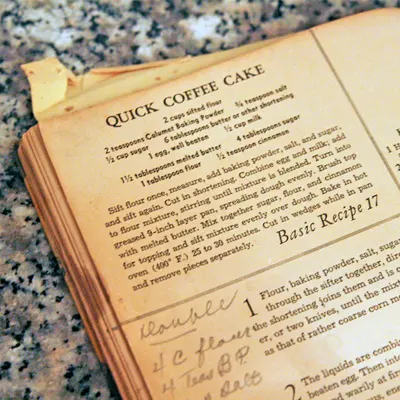 QUICK COFFEE CAKE
2 cups sifted flour ¾ teaspoon salt
2 teaspoons Calumet Baking Powder 6 tablespoons butter or other shortening
½ cup sugar 1 egg, well beaten ½ cup milk
1½ tablespoons melted butter 4 tablespoons sugar
1 tablespoon flour ½ teaspoon cinnamon
Sift flour once, measure, add baking powder, salt, and sugar,
and sift again. Cut in shortening. Combine egg and milk; add
to flour mixture, stirring until mixture is blended. Turn into
greased 9-inch layer pan, spreading dough evenly. Brush top
with melted butter. Mix together sugar, flour, and cinnamon
for topping and sift mixture evenly over dough. Bake in hot
oven (400° F.) 25 to 30 minutes. Cut in wedges while in pan
and remove pieces separately.
Basic Recipe 17
1 Flour, baking powder, salt, sugar
through the sifter together, dir
the shortening joins them and is c
er, or two knives, until the mixtu
as that of rather coarse corn m
Double
4 C flour
4 Teas B.P.
Salt
2 The liquids are combin
beaten egg. Then int
and warily at fir